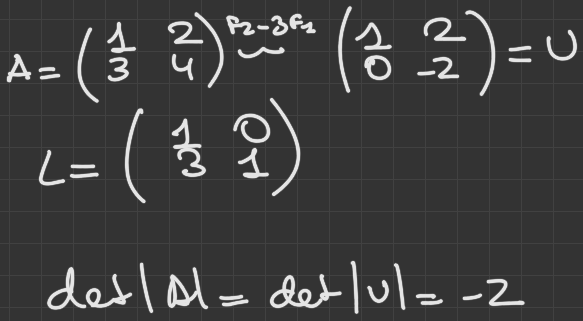 A = ( 1 2 ; 3 4 ) F2-3F1 ( 1 2 ; 0 -2 ) = U
L = ( 1 0 ; 3 1 )
det|A| = det|U| = -2